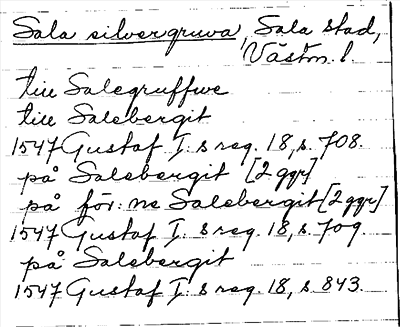 Sala silvergruva, Sala stad,
Västm. l.
till Salegruffwe
till Salebergit
1547 Gustaf I:s reg. 18, s. 708.
på Salebergit [2 ggr]
på för:ne Salebergit [2 ggr]
1547 Gustaf I:s reg. 18, s. 709.
på Salebergit
1547 Gustaf I:s reg. 18, s 843.